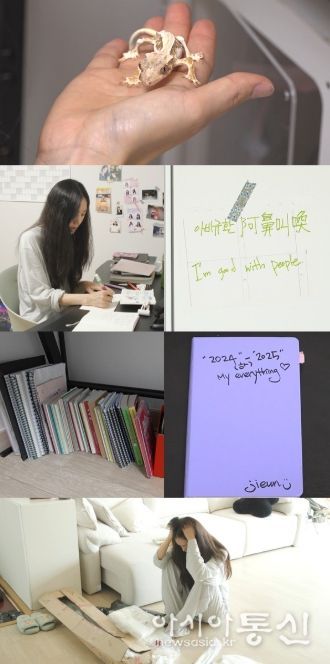 아비규환 阿鼻叫喚
I'm good with people
"2024" - "2025"
My everything ♡
jieun
아시아통신
newsasia.kr